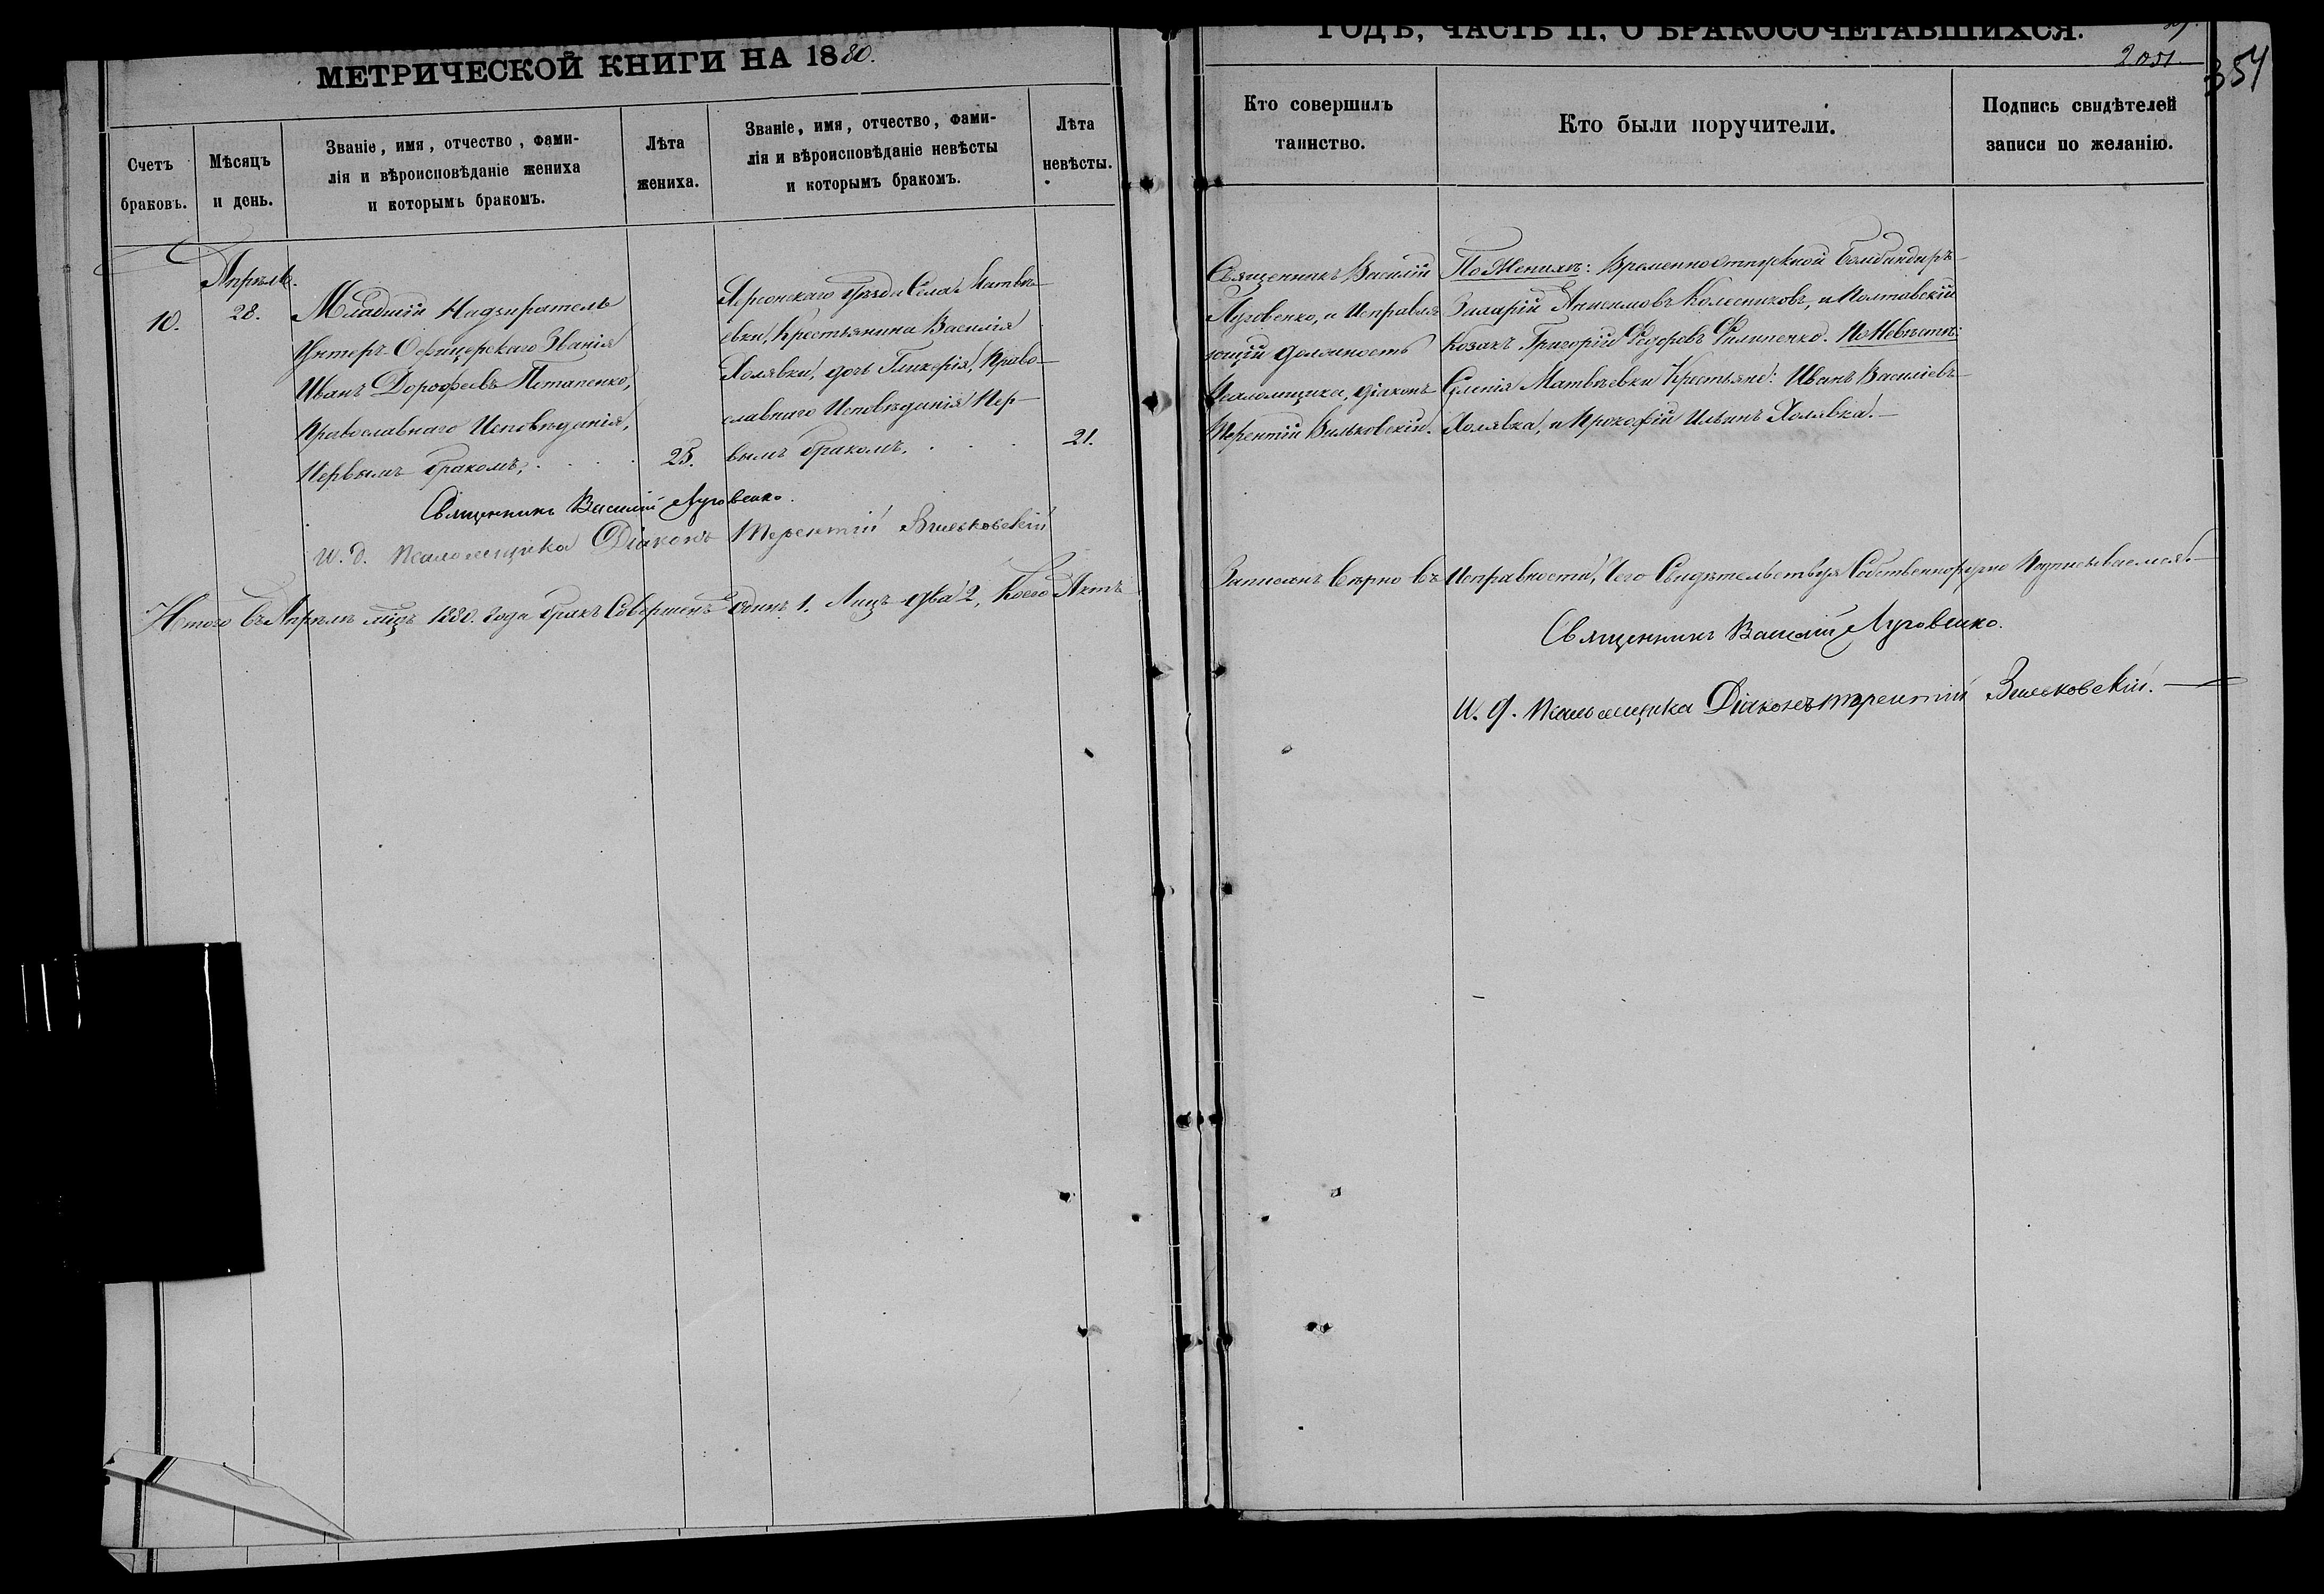 МЕТРИЧЕСКОЙ КНИГИ НА 1880.
Счетъ браковъ.
Мѣсяцъ и день.
Званіе, имя, отчество, фами-
лія и вѣроисповѣданіе жениха
и которымъ бракомъ.
Лѣта жениха.
Званіе, имя, отчество, фами-
лія и вѣроисповѣданіе невѣсты
и которымъ бракомъ.
Лѣта невѣсты.
10.
Апрѣль.
28.
Младшій Надзиратель
Унтеръ-Офицерскаго Званія
Иванъ Дорофеевъ Потапенко,
Православнаго Исповѣданія,
Первымъ бракомъ,
25.
Херсонскаго уѣзда Села Матвѣ-
евки, Крестьянина Василія
Холявки, дочь Гликерія, Право-
славнаго Исповѣданія Пер-
вымъ бракомъ.
21.
Священникъ Василій Луговенко.
И. д. Псаломщика Діаконъ Терентій Вильковскій
Итого въ Апрѣлѣ мцѣ 1880. года бракъ Совершенъ одинъ 1. Лицъ два 2, Коего Актъ
ГОДЪ, ЧАСТЬ II, О БРАКОСОЧЕТАВШИХСЯ.
2051.
354
Кто совершилъ
таинство.
Кто были поручители.
Подпись свидѣтелей
записи по желанію.
Священникъ Василій
Луговенко, и Исправля
ющій должность
Псаломщика, діаконъ
Терентій Вильковскій.
По Женихѣ: Временноотпускной Бомбандиръ
Иларій Анисимовъ Колесниковъ, и Полтавскій
Козакъ Григорій Федоровъ Филипенко. По Невѣстѣ:
Селенія Матвѣевки Крестьяне: Иванъ Василіевъ
Холявка, и Прокофій Ильинъ Холявка.
Записанъ вѣрно въ Исправности, Чего Свидѣтельствуя Собственноручно Подписываемся.
Священникъ Василій Луговенко.
И. д. Псаломщика Діаконъ Терентій Вильковскій.